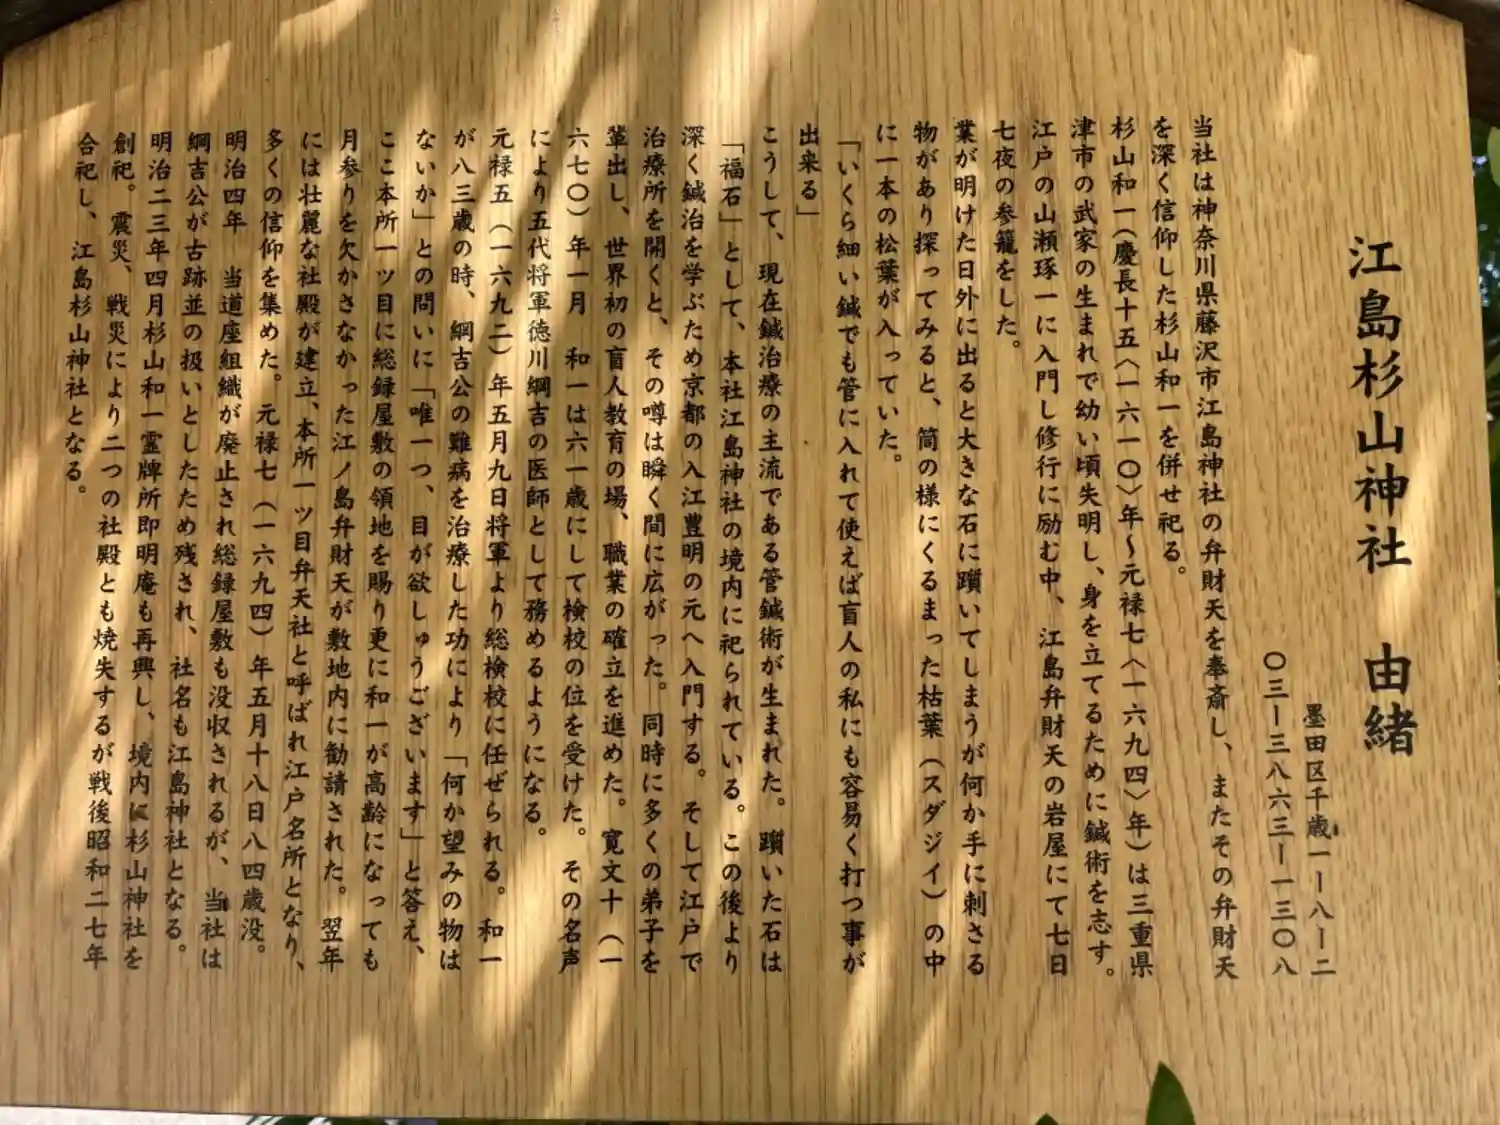 江島杉山神社 由緒
墨田区千歳一ー八ー二
〇三ー三八六三ー一三〇八
当社は神奈川県藤沢市江島神社の弁財天を奉斎し、またその弁財天
を深く信仰した杉山和一を併せ祀る。
杉山和一(慶長十五〈一六一〇〉年〜元禄七〈一六九四〉年)は三重県
津市の武家の生まれで幼い頃失明し、身を立てるために鍼術を志す。
江戸の山瀬琢一に入門し修行に励む中、江島弁財天の岩屋にて七日
七夜の参籠をした。
業が明けた日外に出ると大きな石に躓いてしまうが何か手に刺さる
物があり探ってみると、筒の様にくるまった枯葉(スダジイ)の中
に一本の松葉が入っていた。
「いくら細い鍼でも管に入れて使えば盲人の私にも容易く打つ事が
出来る」
こうして、現在鍼治療の主流である管鍼術が生まれた。躓いた石は
「福石」として、本社江島神社の境内に祀られている。この後より
深く鍼治を学ぶため京都の入江豊明の元へ入門する。そして江戸で
治療所を開くと、その噂は瞬く間に広がった。同時に多くの弟子を
輩出し、世界初の盲人教育の場、職業の確立を進めた。寛文十(一
六七〇)年一月 和一は六一歳にして検校の位を受けた。その名声
により五代将軍徳川綱吉の医師として務めるようになる。
元禄五(一六九二)年五月九日将軍より総検校に任ぜられる。和一
が八三歳の時、綱吉公の難病を治療した功により「何か望みの物は
ないか」との問いに「唯一つ、目が欲しゅうございます」と答え、
ここ本所一ツ目に総録屋敷の領地を賜り更に和一が高齢になっても
月参りを欠かさなかった江ノ島弁財天が敷地内に勧請された。翌年
には壮麗な社殿が建立、本所一ツ目弁天社と呼ばれ江戸名所となり、
多くの信仰を集めた。元禄七(一六九四)年五月十八日八四歳没。
明治四年 当道座組織が廃止され総録屋敷も没収されるが、当社は
綱吉公が古跡並の扱いとしたため残され、社名も江島神社となる。
明治二三年四月杉山和一霊牌所即明庵も再興し、境内に杉山神社を
創祀。震災、戦災により二つの社殿とも焼失するが戦後昭和二七年
合祀し、江島杉山神社となる。